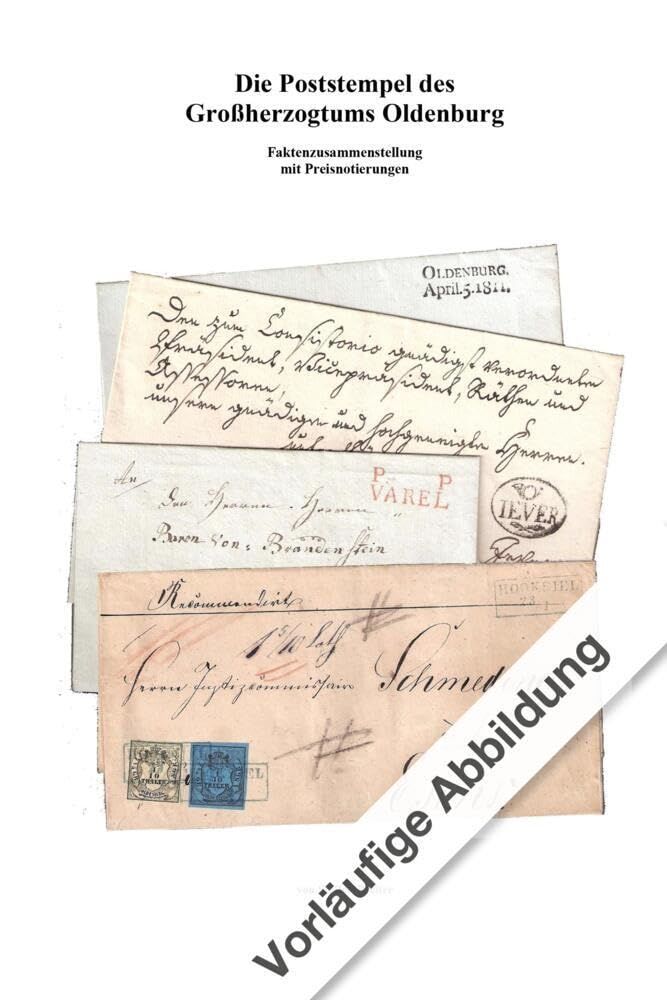 Die Poststempel des
Großherzogtums Oldenburg
Faktenzusammenstellung
mit Preisnotierungen
OLDENBURG.
April.5.1811.
Den zum Consistorio gnädigst verordneten
Präsident, Vicepräsident, Räthen und
Assessoren,
unsere gnädigen und hochgeneigte Herren.
P. P
VAREL
An
IEVER
Den Herren Herren
Baron von: Brandenstein
Recommendirt
HOOKSIEL
23
1 5/10 Loth
Herrn Justizcommissair Schmed
1
10
THALER
1
30
THALER
von
Vorläufige Abbildung